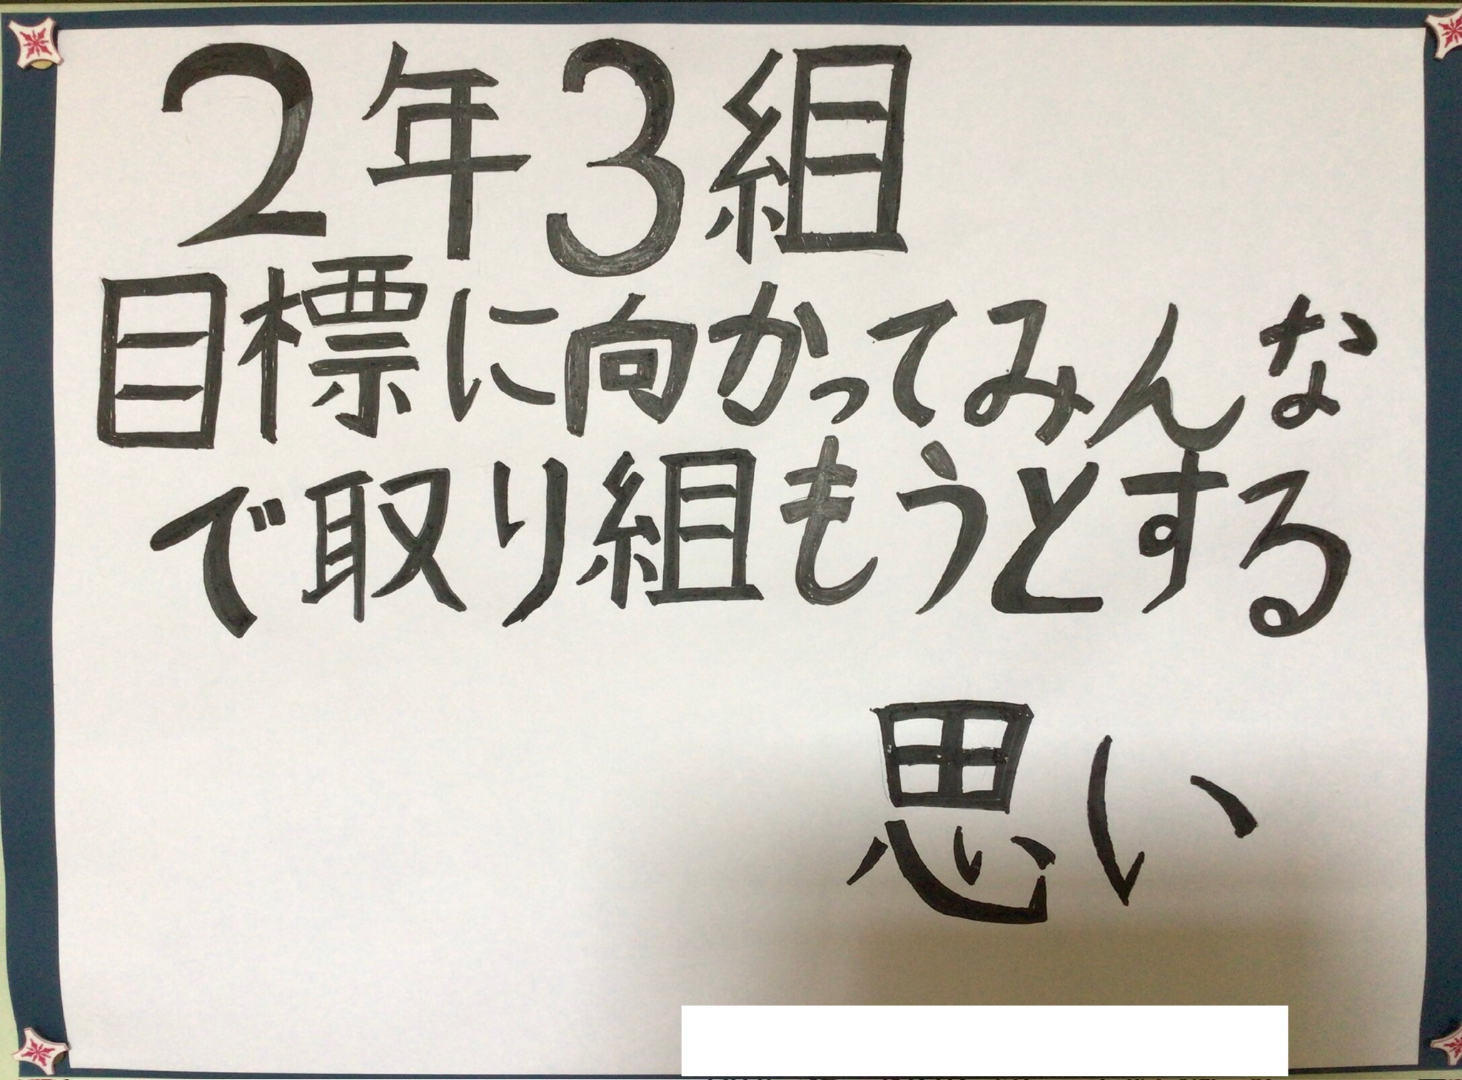 2年3組
目標に向かってみんな
で取り組もうとする
思い